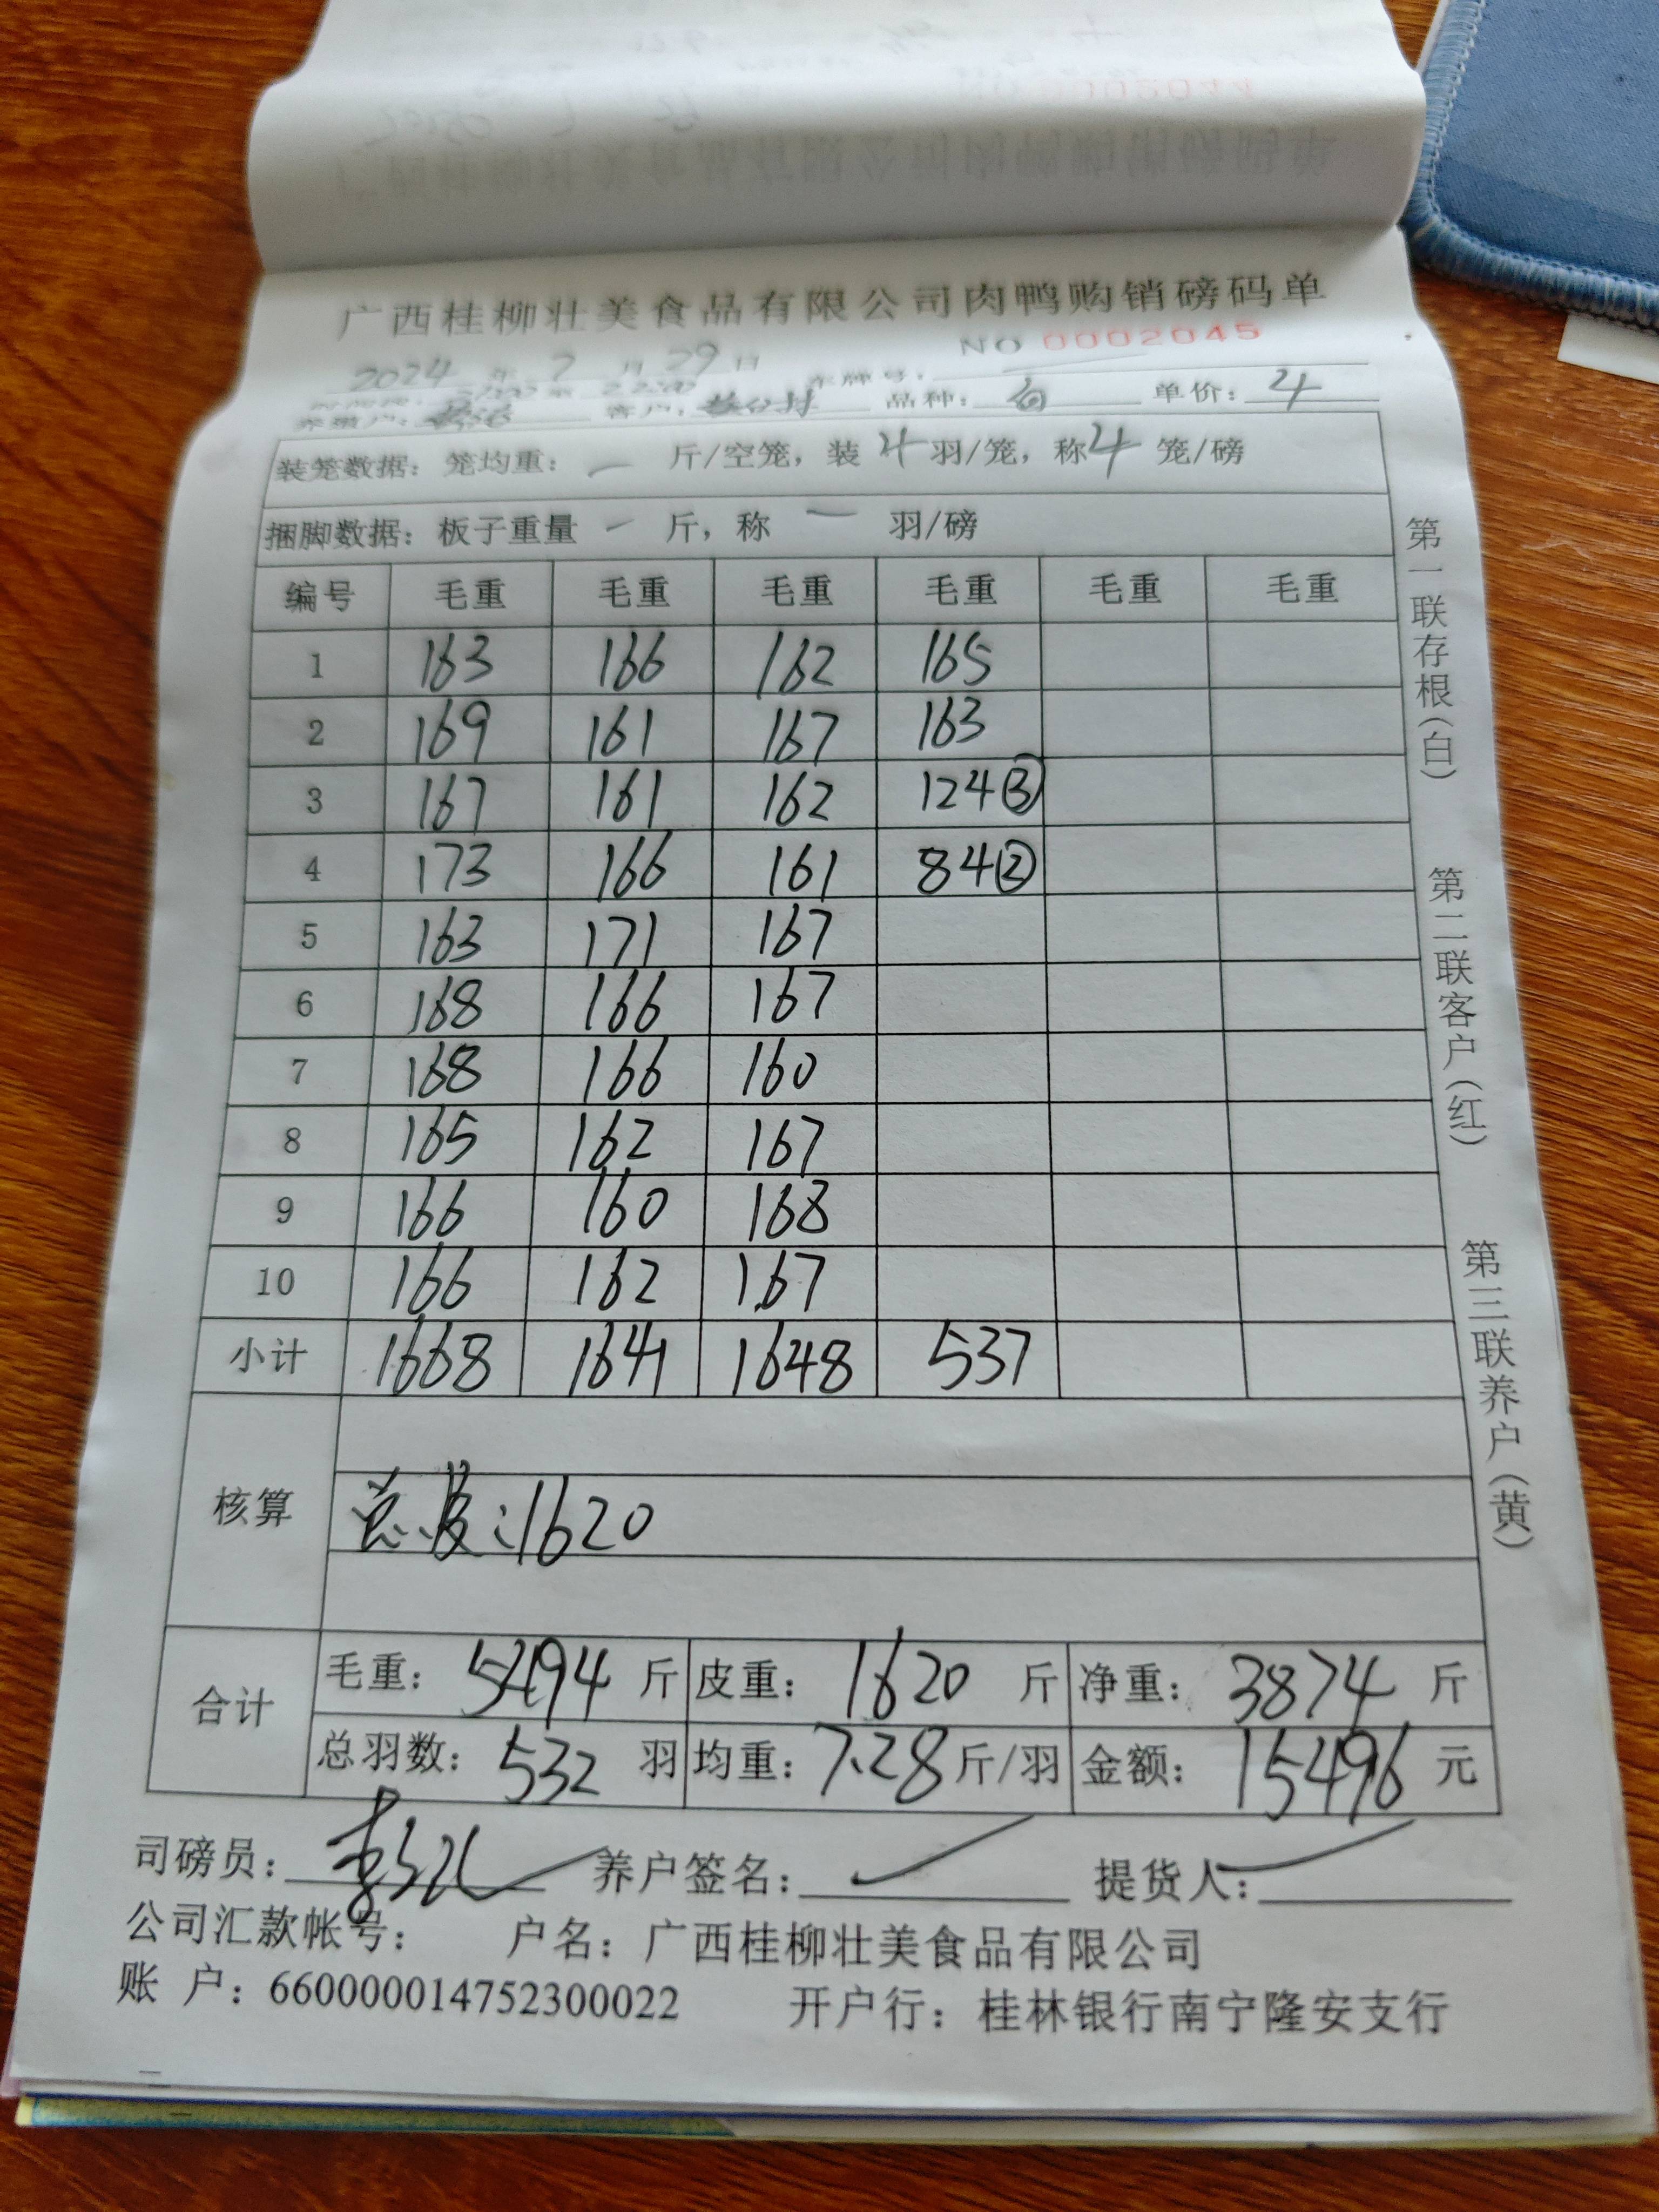 广西桂柳壮美食品有限公司肉鸭购销磅码单
NO 0002045
2024 年 7 月 29 日
品种: 单价: 4
装笼数据: 笼均重: 一 斤/空笼, 装 4 羽/笼, 称 4 笼/磅
捆脚数据: 板子重量 一 斤, 称 一 羽/磅
编号 毛重 毛重 毛重 毛重 毛重 毛重
1 163 166 162 165
2 169 161 167 163
3 167 161 162 124③
4 173 166 161 84②
5 163 171 167
6 168 166 167
7 168 166 160
8 165 162 167
9 166 160 168
10 166 162 167
小计 1668 1641 1648 537
核算
总皮:1620
合计
毛重: 5494 斤 皮重: 1620 斤 净重: 3874 斤
总羽数: 532 羽 均重: 7.28 斤/羽 金额: 15496 元
司磅员: 养户签名: 提货人:
公司汇款帐号: 户名: 广西桂柳壮美食品有限公司
账 户: 660000014752300022 开户行: 桂林银行南宁隆安支行
第一联存根(白)
第二联客户(红)
第三联养户(黄)